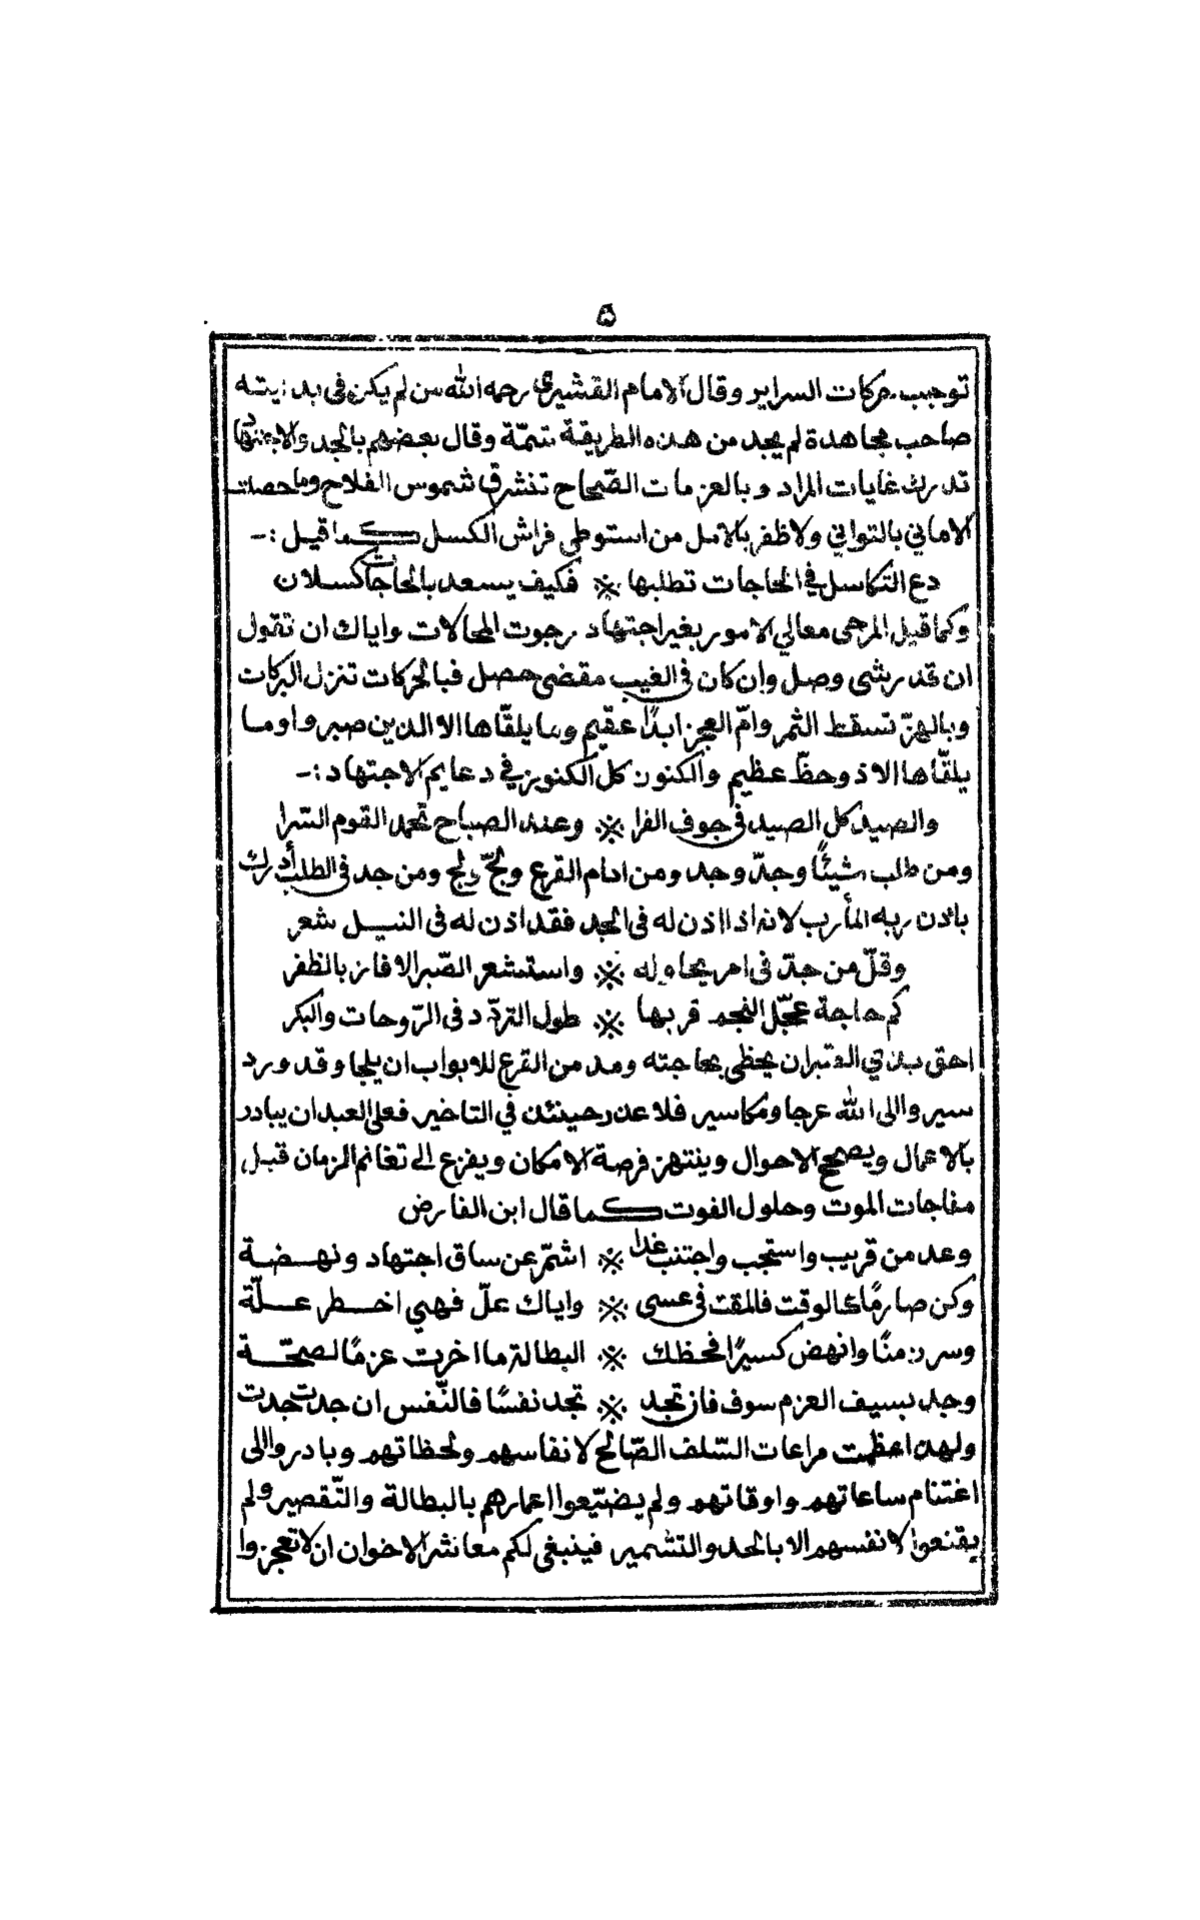 ۵
توجب حركات السراير وقال الامام القشيرى رحمه الله من لم يكن فى بدايته
صاحب مجاهدة لم يجد من هذه الطريقة شمّة وقال بعضهم بالجد والاجتهاد
تدرك غايات المراد وبالعزمات الصّحاح تنشرق شموس الفلاح وما حصلت
الاماني بالتواني ولا ظفر بالامل من استوطى فراش الكسل كما قيل :-
دع التكاسل في الحاجات تطلبها ※ فكيف يسعد بالحاجات كسلان
وكما قيل المرجى معالي الامور بغير اجتهاد رجوت المحالات واياك ان تقول
ان قدر شى وصل وان كان فى الغيب مقضى حصل فبالحركات تنزل البركات
وبالهزّ تسقط الثمر وامّ العجز ابدًا عقيم وما يلقّاها الا الذين صبروا وما
يلقّاها الا ذو حظّ عظيم والكنون كل الكنوز في دعايم الاجتهاد :-
والصيد كل الصيد فى جوف الفرا ※ وعند الصباح تحمد القوم السّرا
ومن طلب شيئًا وجدّ وجد ومن ادام القرع ولجّ ولج ومن جد فى الطلب أدرك
باذن ربه المأرب لانه اذا اذن له فى الجد فقد اذن له فى النيل شعر
وقلّ من جدّ فى امر يحاوله ※ واستشعر الصّبر الا فاز بالظفر
كم حاجة عجّل النجح قربها ※ طول التردّد فى الرّوحات والبكر
احق بذي الصبر ان يحظى بحاجته ومدمن القرع للابواب ان يلجا وقد ورد
سيروا الى الله عرجا ومكاسير فلا عذر حينئذ في التاخير فعلى العبد ان يبادر
بالاعمال ويصحح الاحوال وينتهز فرصة الامكان ويفزع الى تغانم الزمان قبل
مفاجات الموت وحلول الفوت كما قال ابن الفارض
وعد من قريب واستجب واجتنب غدا ※ اشمّر عن ساق اجتهاد ونهضة
وكن صارمًا كالوقت فالمقت فى عسى ※ واياك علّ فهي اخطر علّة
وسر زمنًا وانهض كسيرًا فحظك ※ البطالة ما اخرت عزمًا لصحّة
وجد بسيف العزم سوف فان تجد ※ تجد نفسًا فالنّفس ان جدت جدت
ولهذا عظمت مراعات السّلف الصّالح لانفاسهم ولحظاتهم وبادروا الى
اغتنام ساعاتهم واوقاتهم ولم يضيّعوا اعمارهم بالبطالة والتّقصير ولم
يقنعوا لانفسهم الا بالجد والتشمير فينبغى لكم معاشر الاخوان ان لا تعجزوا